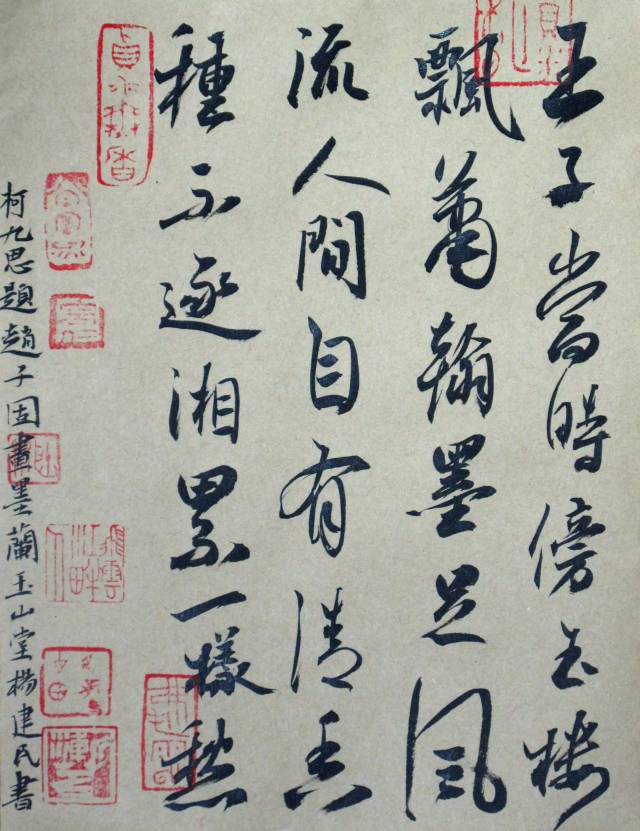 王子當時傍玉樓
飄蕭翰墨足風
流人間自有清香
種不逐湘累一樣愁
柯九思題趙子固畫墨蘭玉山堂楊建民書